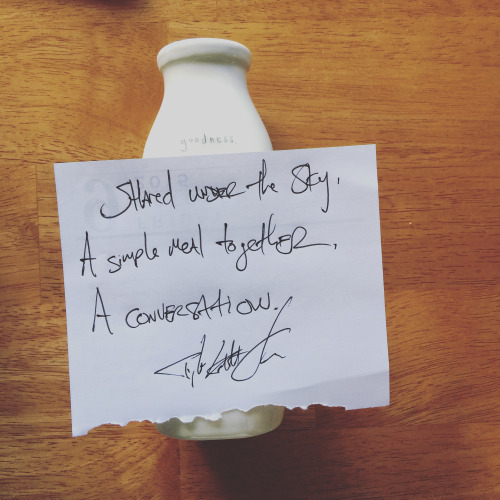 goodness.
Shared under the sky.
A simple meal together.
A conversation.